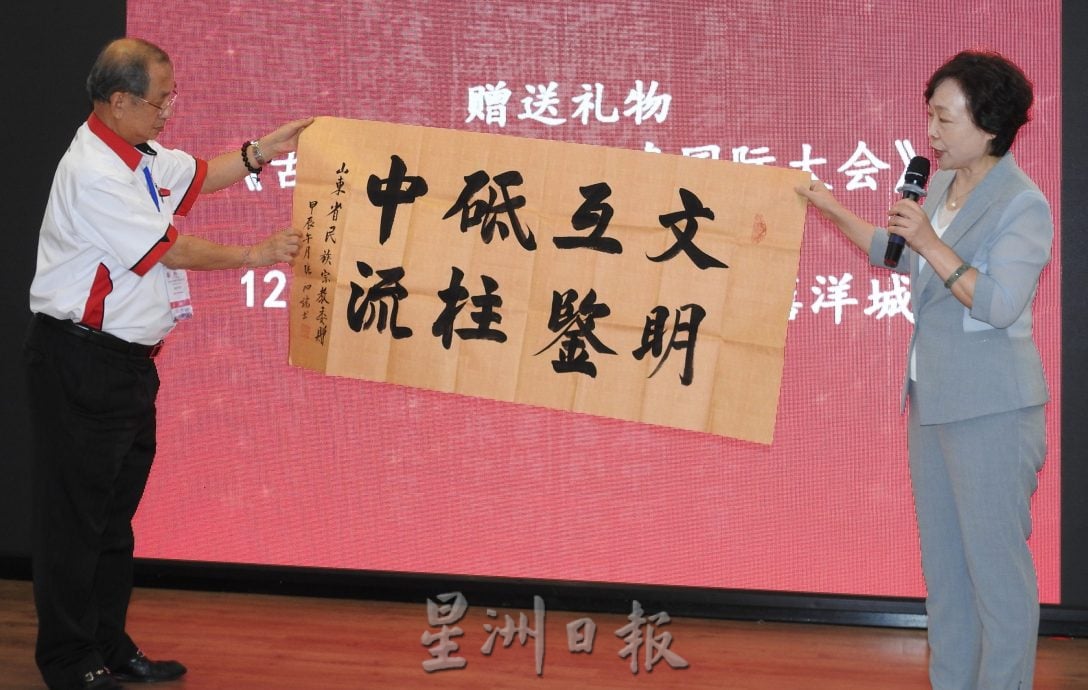 赠送礼物
国际大会》
12
洋城
文明
互鉴
砥柱
中流
山東省民族宗教委
甲辰午月
星洲日报